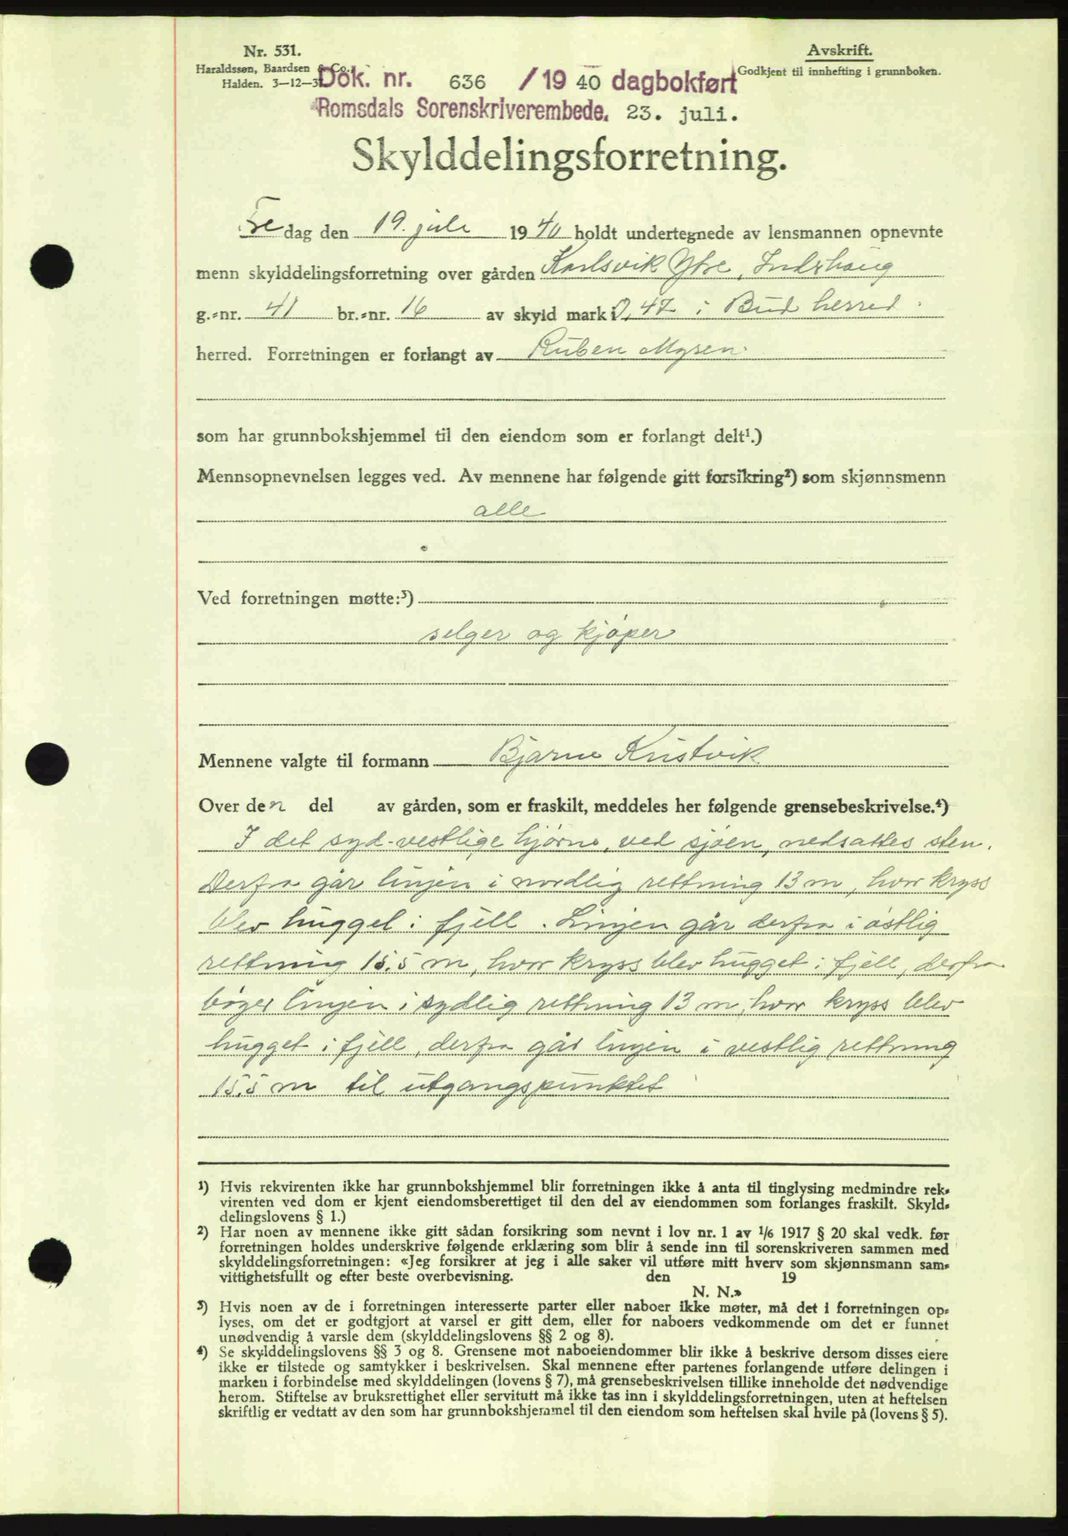 Nr. 531.
Haraldssøn, Baardsen & Co.,
Halden. 3—12—3
Avskrift.
Godkjent til innhefting i grunnboken.
Dok. nr. 636 / 19 40 dagbokført
Romsdals Sorenskriverembede. 23. juli.
Skylddelingsforretning.
Fre dag den 19. juli 19 40 holdt undertegnede av lensmannen opnevnte
menn skylddelingsforretning over gården Karlsvik Ytre, Indrhaug
g.-nr. 41 br.-nr. 16 av skyld mark 0,47 i Bud herred
herred. Forretningen er forlangt av Ruben Mysen
som har grunnbokshjemmel til den eiendom som er forlangt delt¹.)
Mennsopnevnelsen legges ved. Av mennene har følgende gitt forsikring²) som skjønnsmenn
alle
Ved forretningen møtte:³)
selger og kjøper
Mennene valgte til formann Bjarne Kristvik
Over den del av gården, som er fraskilt, meddeles her følgende grensebeskrivelse.⁴)
I det syd-vestlige hjørne, ved sjøen, nedsattes sten.
Derfra går linjen i nordlig rettning 13 m, hvor kryss
blev hugget i fjell. Linjen går derfra i østlig
rettning 15.5 m, hvor kryss blev hugget i fjell, derfra
bøyer linjen i sydlig rettning 13 m, hvor kryss blev
hugget i fjell, derfra går linjen i vestlig rettning
15.5 m til utgangspunktet
¹) Hvis rekvirenten ikke har grunnbokshjemmel blir forretningen ikke å anta til tinglysing medmindre rek-
virenten ved dom er kjent eiendomsberettiget til den del av eiendommen som forlanges fraskilt. Skyld-
delingslovens § 1.)
²) Har noen av mennene ikke gitt sådan forsikring som nevnt i lov nr. 1 av 1/6 1917 § 20 skal vedk. før
forretningen holdes underskrive følgende erklæring som blir å sende inn til sorenskriveren sammen med
skylddelingsforretningen: «Jeg forsikrer at jeg i alle saker vil utføre mitt hverv som skjønnsmann sam-
vittighetsfullt og efter beste overbevisning. den 19
N. N.»
³) Hvis noen av de i forretningen interesserte parter eller naboer ikke møter, må det i forretningen op-
lyses, om det er godtgjort at varsel er gitt dem, eller for naboers vedkommende om det er funnet
unødvendig å varsle dem (skylddelingslovens §§ 2 og 8).
⁴) Se skylddelingslovens §§ 3 og 8. Grensene mot naboeiendommer blir ikke å beskrive dersom disses eiere
ikke er tilstede og samtykker i beskrivelsen. Skal mennene efter partenes forlangende utføre delingen i
marken i forbindelse med skylddelingen (lovens § 7), må grensebeskrivelsen tillike inneholde det nødvendige
herom. Stiftelse av bruksrettighet eller servitutt må ikke tas inn i skylddelingsforretningen, uten at heftelsen
skriftlig er vedtatt av den som har grunnbokshjemmel til den eiendom som heftelsen skal hvile på (lovens § 5).